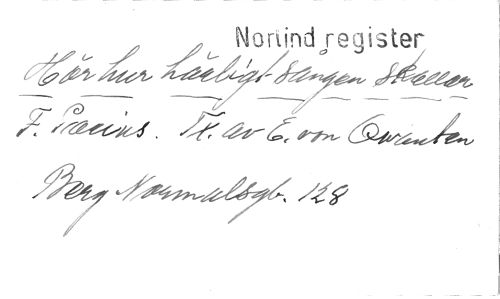 Norlind register
Hör hur härligt sången skallar
F. Pacius. Tx. av E. von Qvanten
Berg Normalsgb. 128